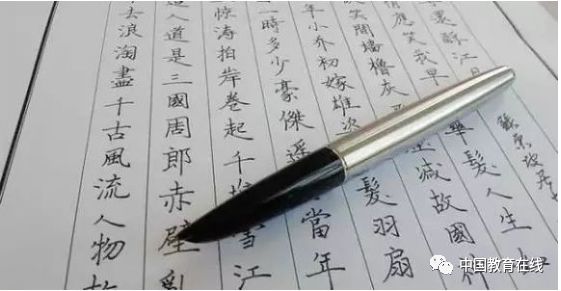 去浪淘盡千古風流人物故
人道是三國周郎赤壁亂
惊涛拍岸卷起千堆雪江
一時多少豪傑遥當年
年小乔初嫁雄姿髮羽扇
笑間墙櫓灰減故國神
情應笑我早華髮人生
還酹江月
中国教育在线